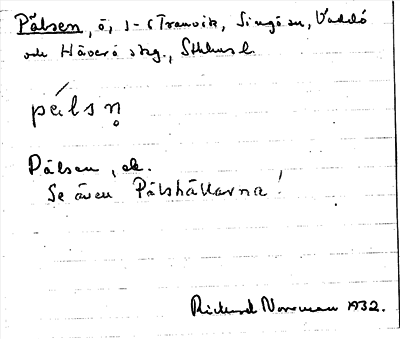 Pålsen, ö, i Tranvik, Singö sn, Väddö
och Häverö skg., Sthlms l.
pålsn̥
Pålsen, ök.
Se även Pålshällarna!
Rickard Norrman 1932.